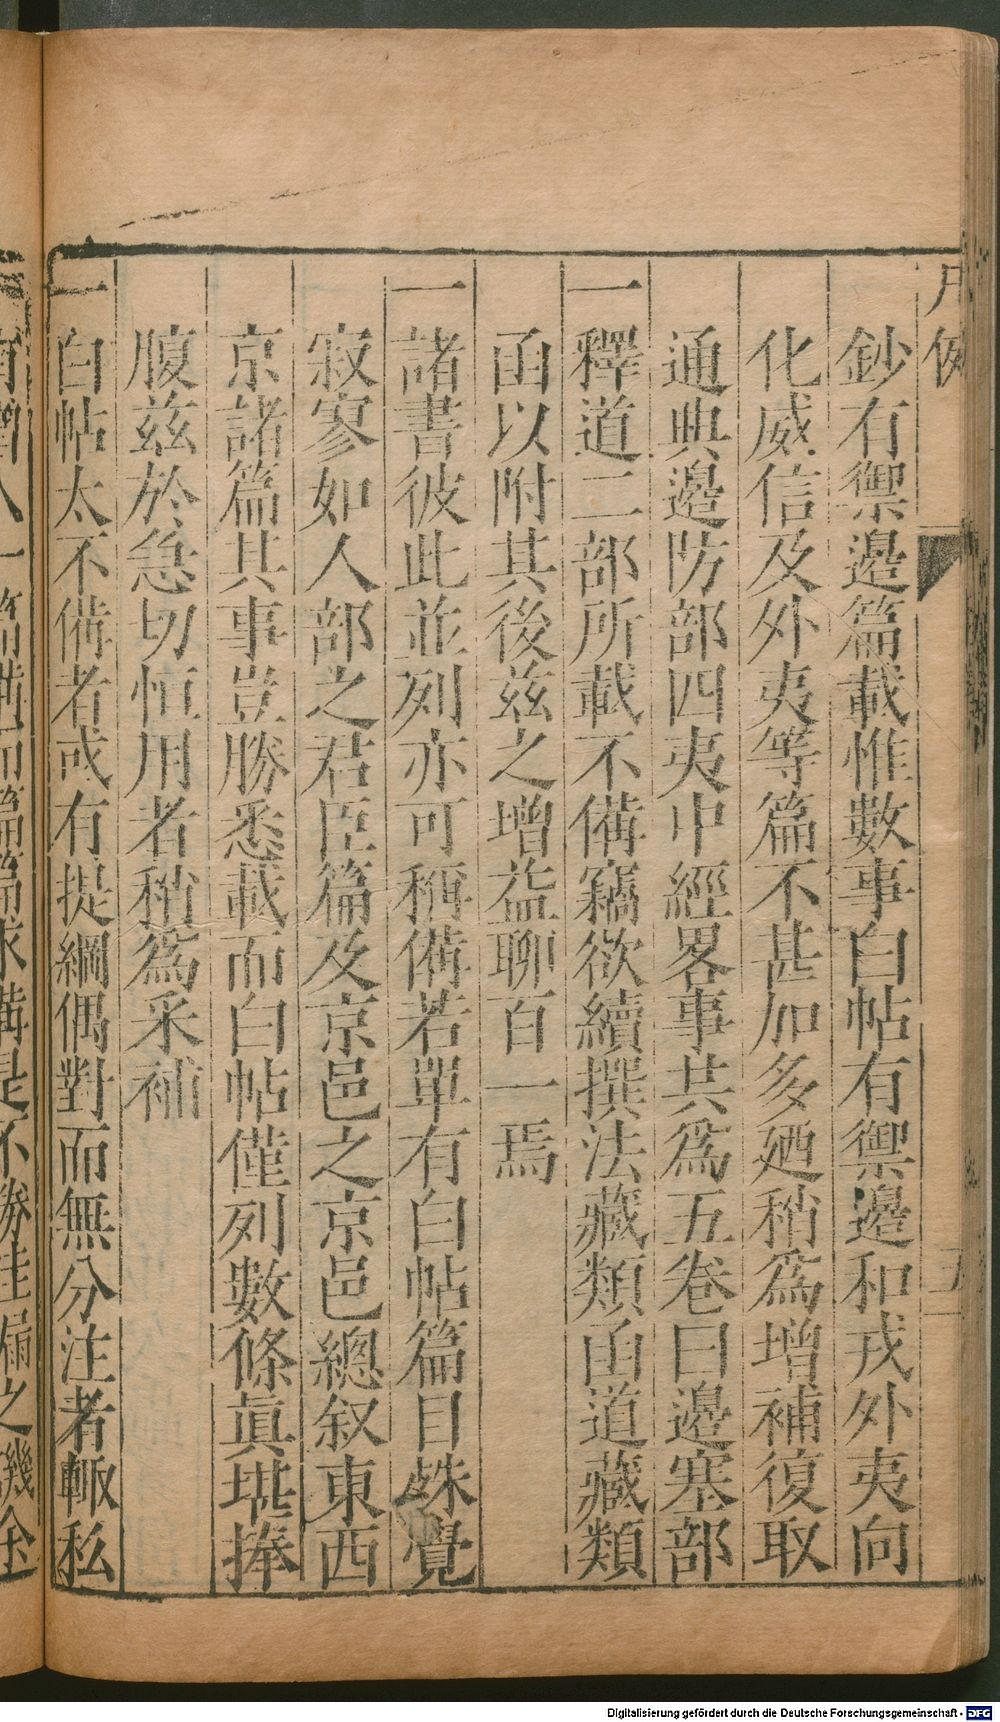 凡例
鈔有禦邊篇載惟數事白帖有禦邊和戎外夷向
化威信及外夷等篇不甚加多廼稍爲增補復取
通典邊防部四夷中經畧事共爲五卷曰邊塞部
一釋道二部所載不備竊欲續撰法藏類函道藏類
函以附其後兹之增益聊百一焉
一諸書彼此並列亦可稱備若單有白帖篇目殊覺
寂寥如人部之君臣篇及京邑之京邑總叙東西
京諸篇其事豈勝悉載而白帖僅列數條眞堪捧
腹兹於急切恒用者稍爲采補
一白帖太不備者或有提綱偶對而無分注者輙私
Digitalisierung gefördert durch die Deutsche Forschungsgemeinschaft - DFG